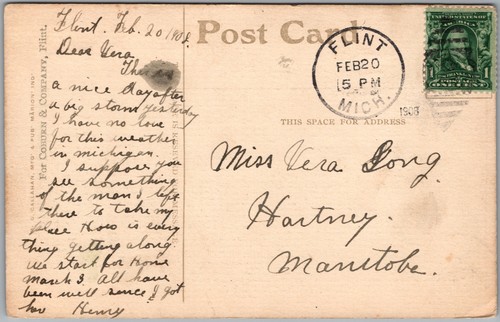 Flint. Feb. 20 1908.
Dear Vera
This is
a nice day after
a big storm yesterday
I have no love
for this weather
in michigan.
I suppose you
see something
of the man I left
there to take my
place How is every
thing getting along
we start for Home
March 3. All have
been well since I got
here Henry
Post Card
FLINT
FEB 20
5 PM
MICH.
1908
1
ONE CENT
THIS SPACE FOR ADDRESS
Miss Vera Long
Hartney.
Manitoba.
For COBURN & COMPANY, Flint.